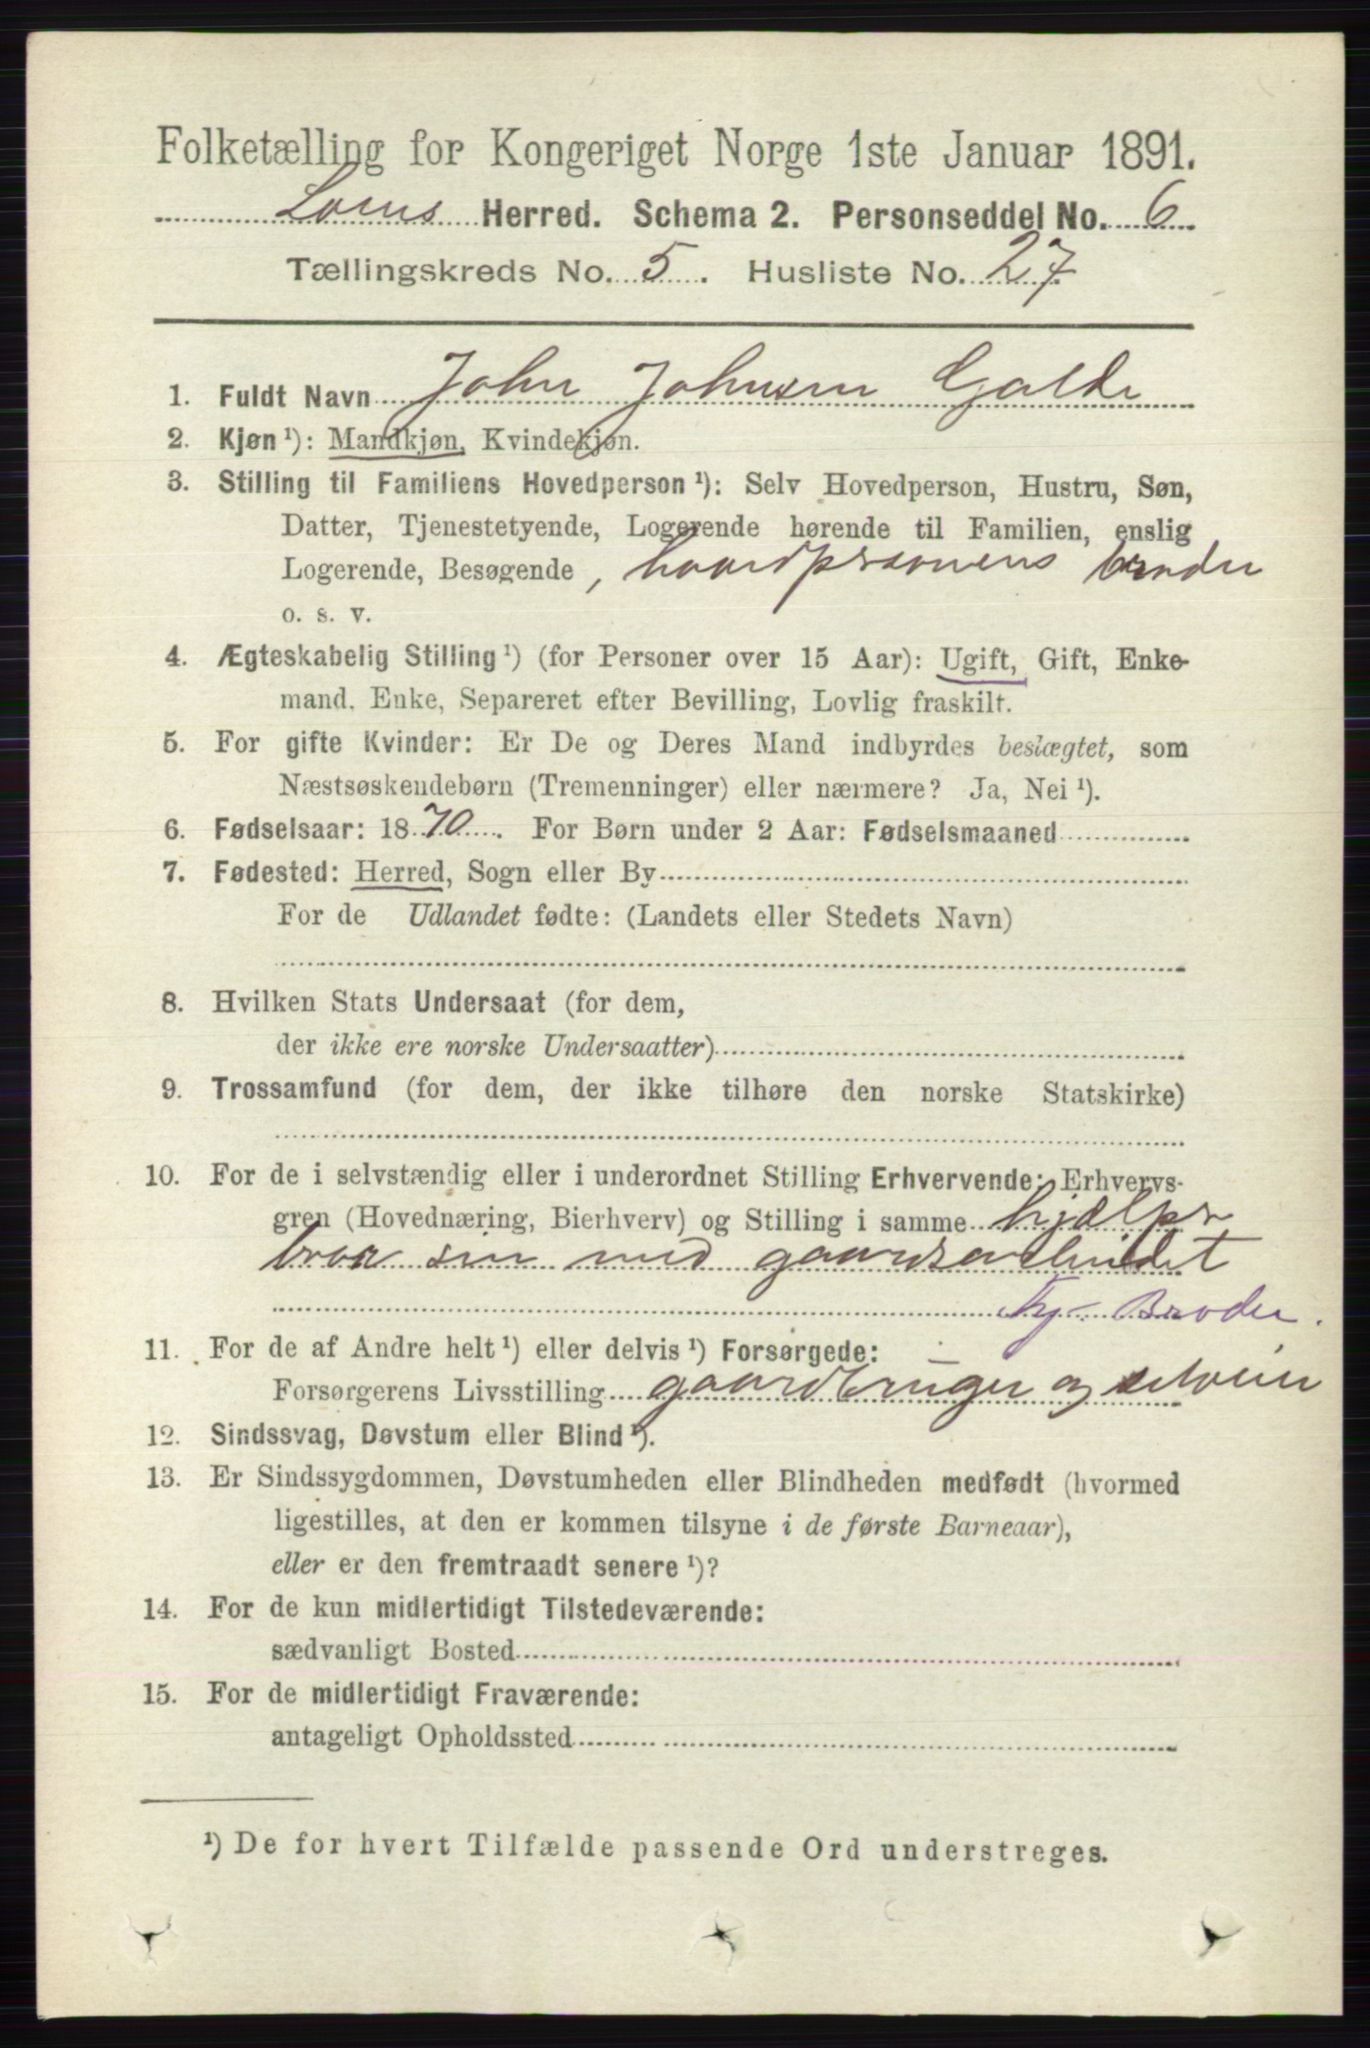 Folketælling for Kongeriget Norge 1ste Januar 1891.
Loms Herred. Schema 2. Personseddel No. 6
Tællingskreds No. 5. Husliste No. 27
1. Fuldt Navn John Johnsen Galde
2. Kjøn ¹): Mandkjøn, Kvindekjøn.
3. Stilling til Familiens Hovedperson ¹): Selv Hovedperson, Hustru, Søn,
Datter, Tjenestetyende, Logerende hørende til Familien, enslig
Logerende, Besøgende, hovedpersonens broder
o. s. v.
4. Ægteskabelig Stilling ¹) (for Personer over 15 Aar): Ugift, Gift, Enke-
mand, Enke, Separeret efter Bevilling, Lovlig fraskilt.
5. For gifte Kvinder: Er De og Deres Mand indbyrdes beslægtet, som
Næstsøskendebørn (Tremenninger) eller nærmere? Ja, Nei ¹).
6. Fødselsaar: 1870. For Børn under 2 Aar: Fødselsmaaned
7. Fødested: Herred, Sogn eller By
For de Udlandet fødte: (Landets eller Stedets Navn)
8. Hvilken Stats Undersaat (for dem,
der ikke ere norske Undersaatter)
9. Trossamfund (for dem, der ikke tilhøre den norske Statskirke)
10. For de i selvstændig eller i underordnet Stilling Erhvervende: Erhvervs-
gren (Hovednæring, Bierhverv) og Stilling i samme hjælper
bror sin med gaardsarbeidet
Tj. Broder.
11. For de af Andre helt ¹) eller delvis ¹) Forsørgede:
Forsørgerens Livsstilling gaardbruger og selveier
12. Sindssvag, Døvstum eller Blind ¹).
13. Er Sindssygdommen, Døvstumheden eller Blindheden medfødt (hvormed
ligestilles, at den er kommen tilsyne i de første Barneaar),
eller er den fremtraadt senere ¹)?
14. For de kun midlertidigt Tilstedeværende:
sædvanligt Bosted
15. For de midlertidigt Fraværende:
antageligt Opholdssted
¹) De for hvert Tilfælde passende Ord understreges.